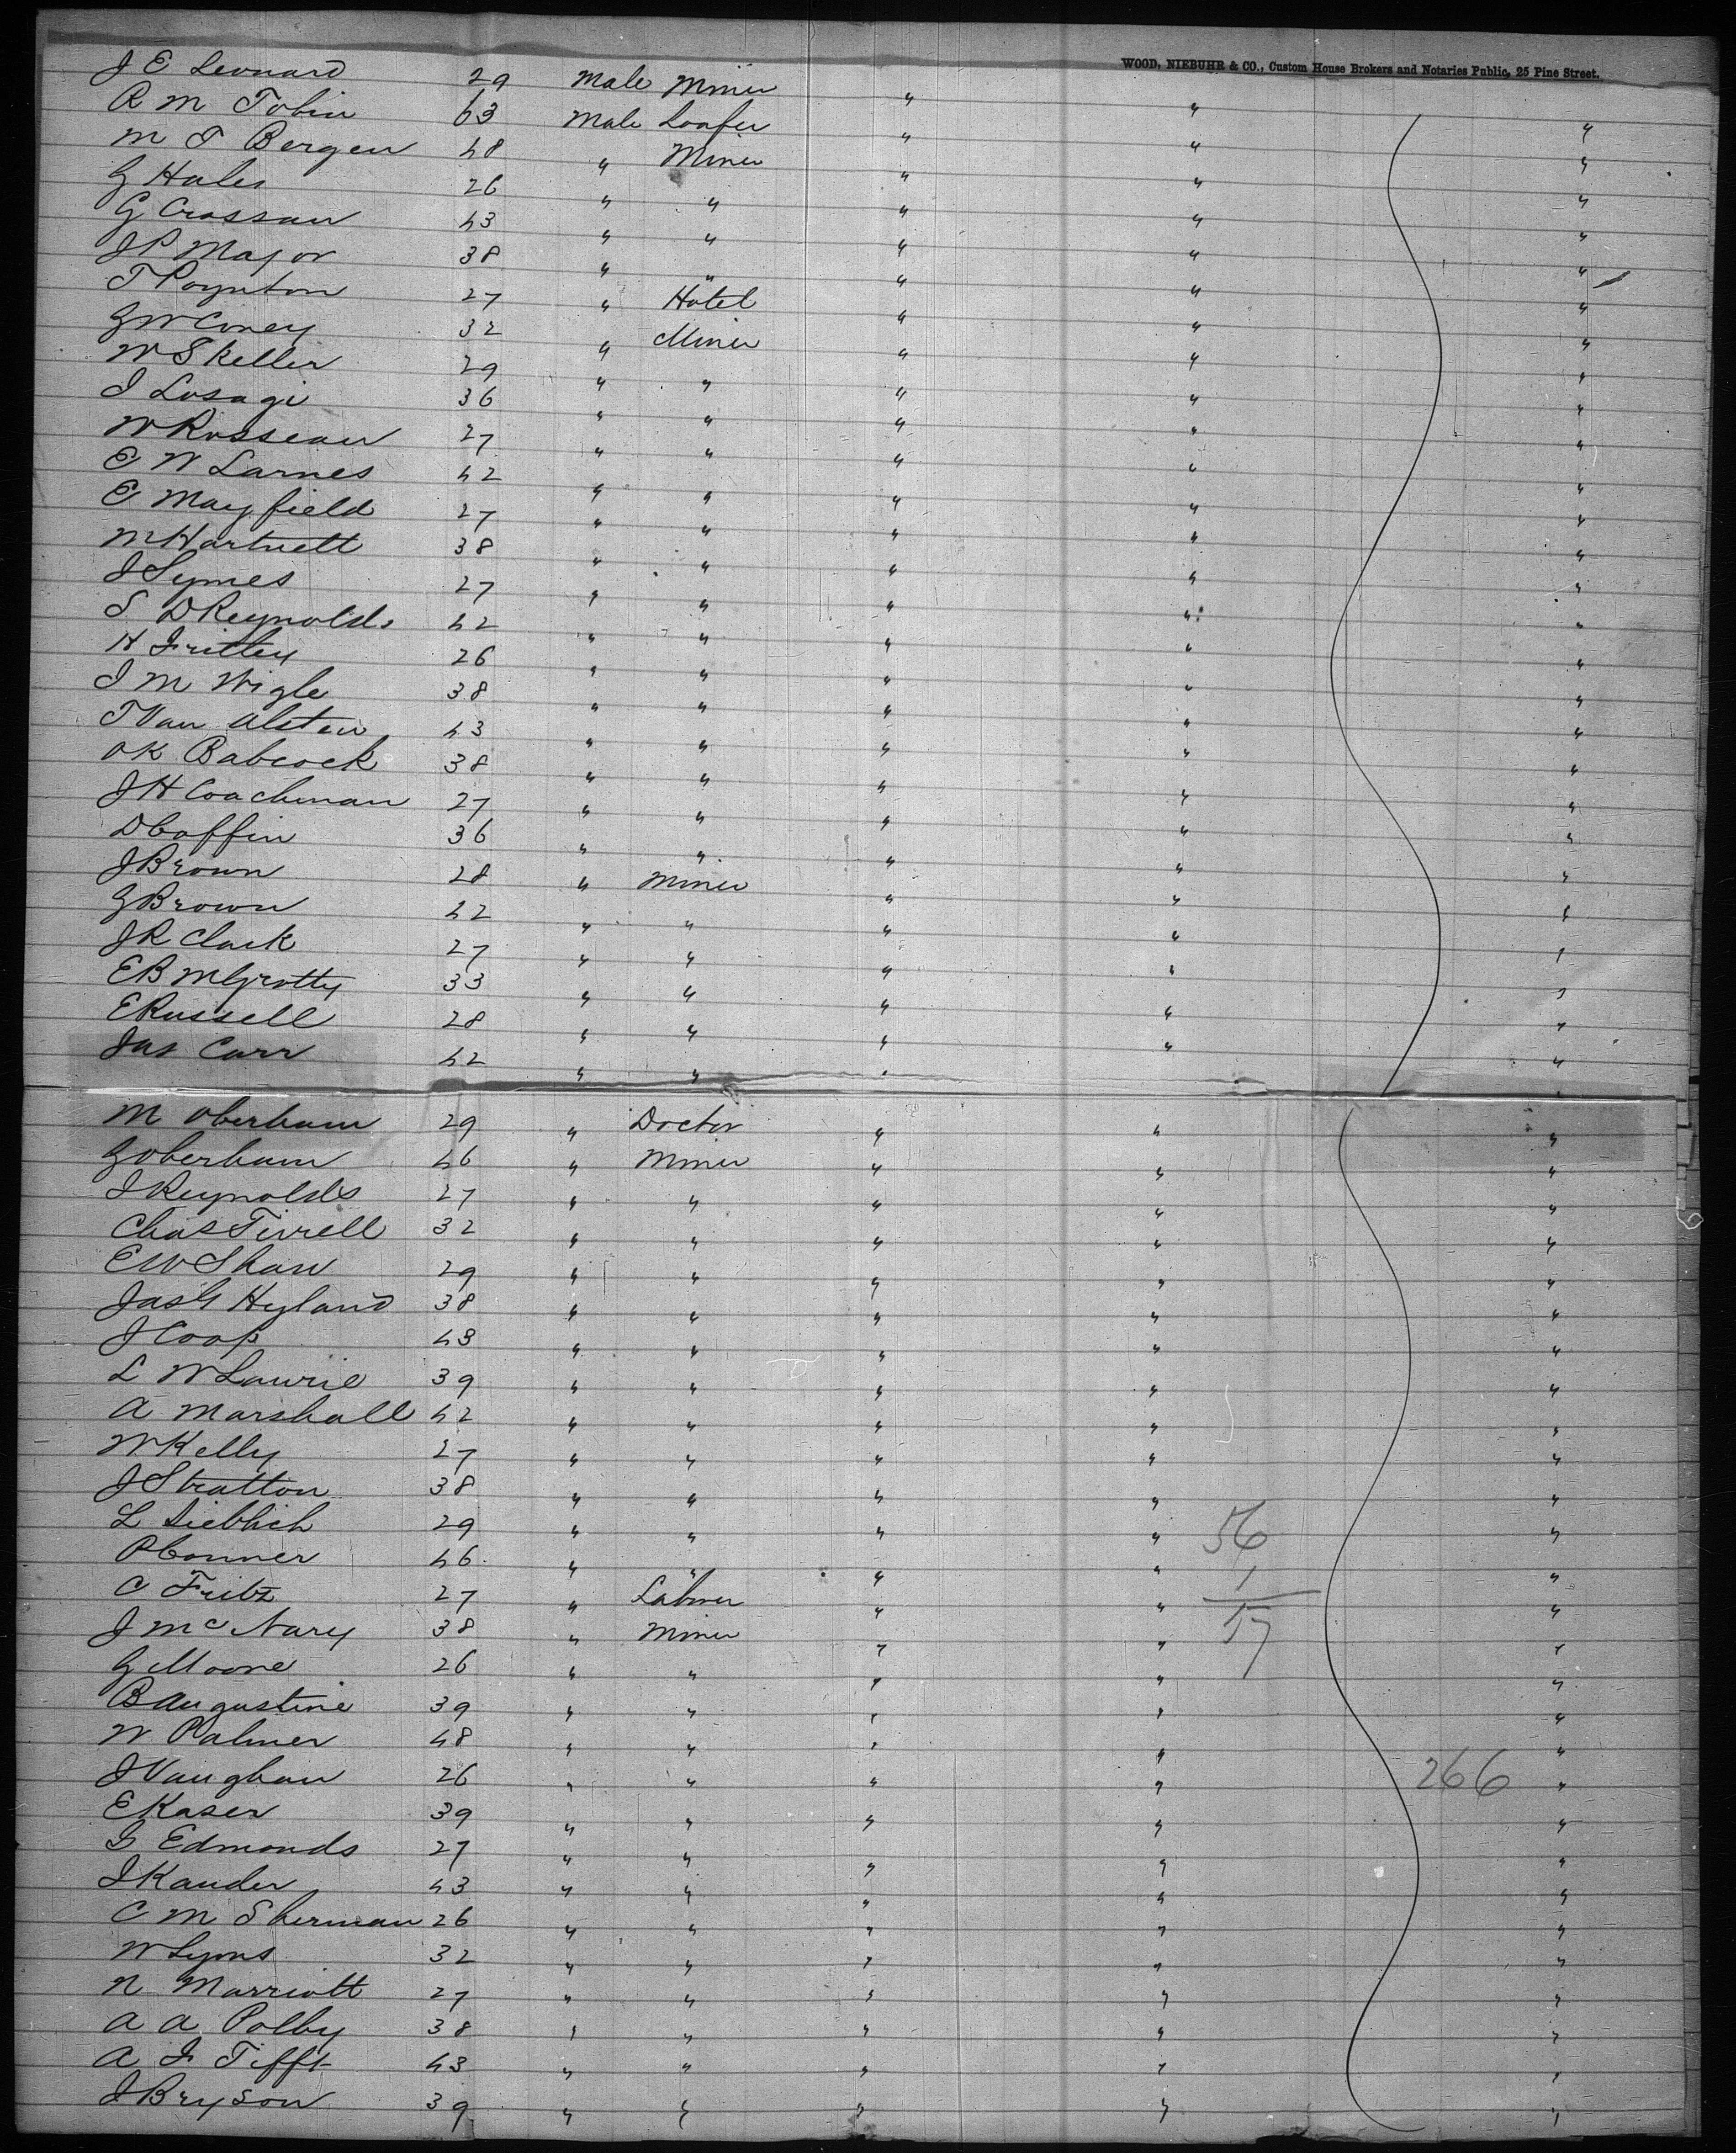 WOOD, NIEBUHR & CO., Custom House Brokers and Notaries Public, 25 Pine Street.
J E Leonard 29 Male Miner " " "
R M Tobin 63 Male Loafer " " "
M T Bergen 48 " Miner " " "
G Hales 26 " " " " "
G Crossan 43 " " " " "
J P Major 38 " " " " "
T Poynton 27 " Hotel " " "
G W Coney 32 " Miner " " "
W S Keller 29 " " " " "
I Losagi 36 " " " " "
W Rosseau 27 " " " " "
E W Larnes 42 " " " " "
E Mayfield 27 " " " " "
M Hartnett 38 " " " " "
J Symes 27 " " " " "
S D Reynolds 42 " " " " "
H Fritley 26 " " " " "
I M Wigle 38 " " " " "
T Van Alsten 43 " " " " "
O K Babcock 38 " " " " "
J H Coachman 27 " " " " "
D Coffin 36 " " " " "
J Brown 28 " Miner " " "
G Brown 42 " " " " "
J R Clark 27 " " " " "
E B McGrotty 33 " " " " "
E Russell 28 " " " " "
Jas Carr 42 " " " "
M Oberham 29 " Doctor " " "
G Oberham 46 " Miner " " "
J Reynolds 27 " " " " "
Chas Tirrell 32 " " " " "
E W Shaw 29 " " " " "
Jas G Hyland 38 " " " " "
J Coop 43 " " " " "
L W Lawrie 39 " " " " "
A Marshall 42 " " " " "
W Kelly 27 " " " " "
J Stratton 38 " " " " "
L Lieblich 29 " " " " " 56
P Conner 46 " " " " " 1
C Fritz 27 " Labrer " " "
J McNary 38 " Miner " " " 57
G Moore 26 " " " " "
B Augustine 39 " " " " "
W Palmer 48 " " " " "
J Vaughan 26 " " " " 266 "
E Kaser 39 " " " " "
G Edmonds 27 " " " " "
I Kauder 43 " " " " "
C M Sherman 26 " " " " "
W Lyons 32 " " " " "
N Marriott 27 " " " " "
A A Polby 38 " " " " "
A J Tifft 43 " " " " "
J Bryson 39 " " " " "